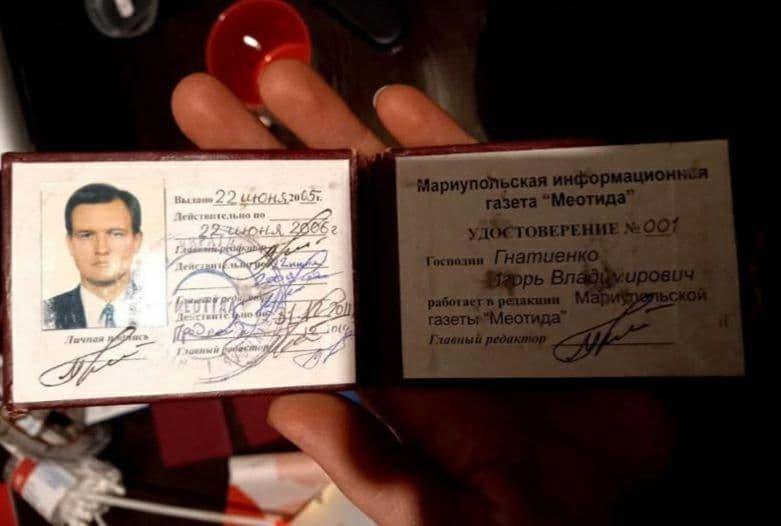 Выдано 22 июня 2005г.
Действительно по
22 июня 2006г
Главный редактор
Действительно по
Главный
Действительно по 31.12.
Главный редактор
Личная подпись
МЕОТИДА
Мариупольская информационная
газета "Меотида"
УДОСТОВЕРЕНИЕ № 001
Господин Гнатиенко
Игорь Владимирович
работает в редакции Мариупольской
газеты "Меотида"
Главный редактор